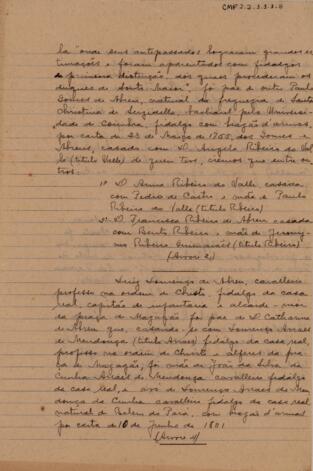 CMF 2.2.3.3.8
la "onde seus antepassados lograram grandes es
timações e foram aparentados com fidalgos
de primeira distinção, dos quaes procederam os
duques de Sotto Maior". foi pae de outro Paulo
Gomes de Abreu, natural da freguezia de Santa
Christina de Sergidello, bacharel pela Universida-
de de Coimbra, fidalgo com brazão d'armas,
por carta de 23 de Março de 1855, dos Gomes e
Abreus, casado com D. Angela Ribeiro do Val
le (titulo Valle) de quem teve, cremos que entre ou
tros:
1º D. Anna Ribeiro do Valle, casada
com Pedro de Castro e mãe e Paulo
Ribeiro do Valle (titulo Ribeiro)
2º D. Francisca Ribeiro de Abreu casada
com Bento Ribeiro e mãe de Jerony-
mo Ribeiro Guimarães (titulo Ribeiro)
(Arvore 2)
Luiz Lourenço de Abreu, cavalleiro
professo na ordem de Christo, fidalgo da casa
real, capitão de infantaria e alcaide-mor
da praça de Mazagão foi pae de D. Catharina
de Abreu que, casando-se com Lourenço Arraes
de Mendonça (titulo Arraes) fidalgo da casa real,
professo na ordem de Christo e alferes da pra
ça de Mazagão, foi mãe de João da Silva da
Cunha Arraes de Mendonça cavalleiro fidalgo
da casa real, e avó de Lourenço Arraes de Men
donça da Cunha cavalleiro fidalgo da casa real
natural de Belem do Pará, com brazão d'armas
por carta de 10 de Junho de 1801
(Arvore 4)